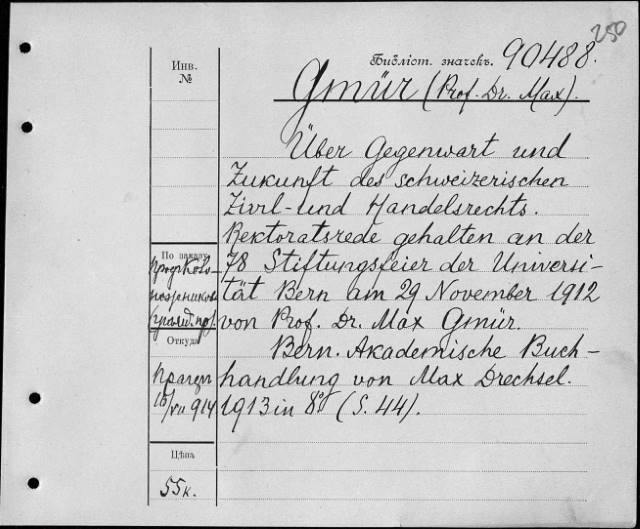 250
Библіот. значекъ. 90488.
Инв.
№
Gmür (Prof. Dr. Max).
Über Gegenwart und
Zukunft des schweizerischen
Zivil- und Handelsrechts.
Rektoratsrede gehalten an der
78 Stiftungsfeier der Universi-
tät Bern am 29 November 1912
von Prof. Dr. Max Gmür.
Bern. Akademische Buch-
handlung von Max Drechsel.
1913 in 8° (S. 44).
По заказу
проф. Ково-
Откуда
10/VII 914
Цѣна
55 к.